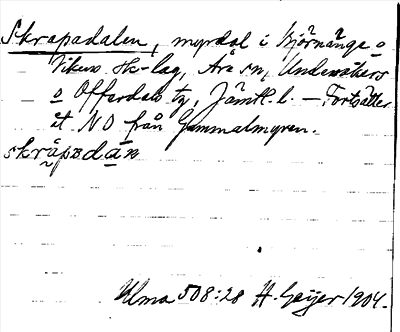 Skrapadalen, myrdål i Björnänge o
Vikens sk-lag, Åre sn, Undersåkers
o Offerdals tg, Jämtl. l. – Fortsätter
åt NO från Gammalmyren.
skråpɒdàn
Ulma 508:28 H. Geijer 1904.